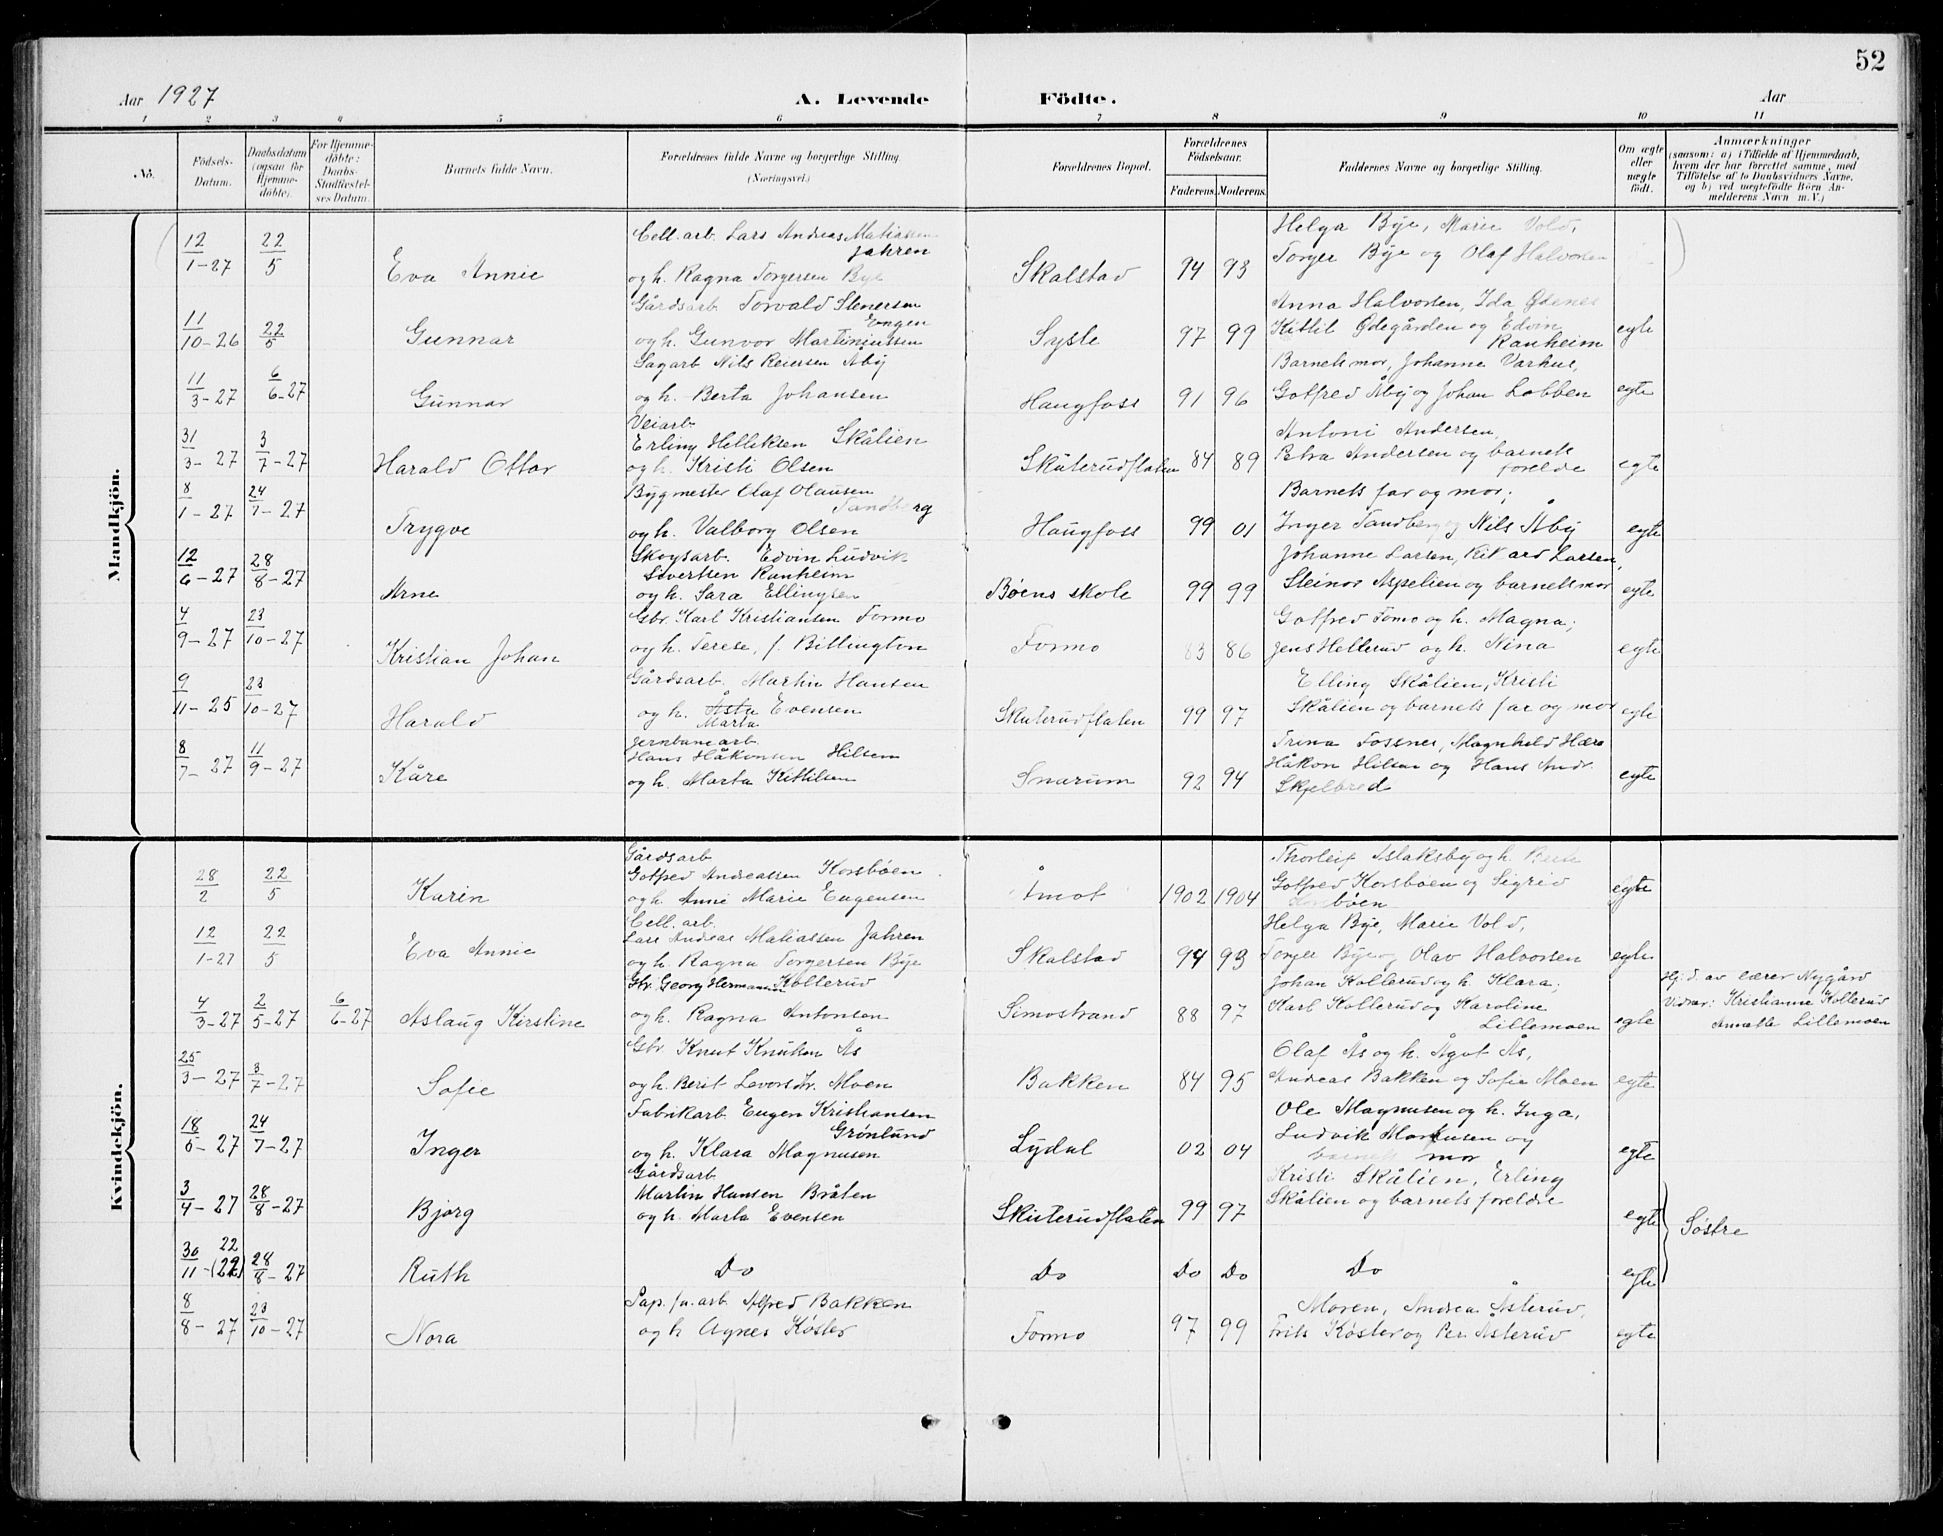 52
Aar 1927
A. Levende Födte.
Aar
1 2 3 4 5 6 7 8 9 10 11
No.
Födsels-Datum.
Daabsdatum (ogsaa for Hjemmedöbte).
For Hjemmedöbte: Daabs-Stadfæstelses Datum.
Barnets fulde Navn.
Forældrenes fulde Navne og borgerlige Stilling. (Næringsvei.)
Forældrenes Bopæl.
Forældrenes Födselsaar.
Faderens. Moderens.
Faddernes Navne og borgerlige Stilling.
Om ægte eller uægte födt.
Anmærkninger
(saasom: a) i Tilfælde af Hjemmedaab, hvem der har forrettet samme, med Tilföielse af to Daabsvidners Navne, og b) ved uægtefödte Börn Anmelderens Navn m. V.)
Mandkjön.
( 12/1-27 22/5 Eva Annie Cell. arb. Lars Andreas Matiassen Jahren
og h. Ragna Torgersen Bye Skalstad 94 93 Helga Bye, Marie Vold,
Torger Bye og Olaf Halvorsen )
11/10-26 22/5 Gunnar Gårdsarb. Torvald Stenersen Engen
og h. Gunvor Martiniussen Sysle 97 99 Anna Halvorsen, Ida Ødenes
Kittil Ødegården og Edvin Ranheim egte
11/3-27 6/6-27 Gunnar Sagarb. Nils Reiersen Åby
og h. Berta Johansen Haugfoss 91 96 Barnets mor, Johanne Varhus,
Gotfred Åby og Johan Lobben egte
31/3-27 3/7-27 Harald Ottar Veiarb.
Erling Helliksen Skålien
og h. Kristi Olsen Skuterudflaten 84 89 Antoni Andersen,
Petra Andersen og barnets forelde egte
8/1-27 24/7-27 Trygve Bygmester Olaf Olausen Tandberg
og h. Valborg Olsen Haugfoss 99 01 Barnets far og mor;
Inger Tandberg og Nils Åby egte
12/6-27 28/8-27 Arne Skogsarb. Edvin Ludvik
Sivertsen Ranheim
og h. Sara Ellingsen Bøens skole 99 99 Johanne Larsen, Rikard Larsen,
Steinar Aspelien og barnets mor egte
4/9-27 23/10-27 Kristian Johan Gbr. Karl Kristiansen Formo
og h. Terese, f. Billington Formo 83 86 Gotfred Fomo og h. Magna;
Jens Hellerud og h. Nina egte
9/11-25 23/10-27 Harald Gårdsarb. Martin Hansen
og h. Åsta Evensen
Marta Skuterudflaten 99 97 Elling Skålien, Kristi
Skålien og barnets far og mor egte
8/7-27 11/9-27 Kåre Jernbanearb.
Hans Håkonsen Hilsen
og h. Marta Kittilsen Snarum 92 94 Trina Fossnes, Magnhild Hære
Håkon Hilsen og Hans Andr.
Skjelbred egte
Kvindekjön.
28/2 22/5 Karin Gårdsarb
Gotfred Andreassen Korsbøen
og h. Anne Marie Eugensen Åmot 1902 1904 Thorleif Aslaksby og h. Berte
Gotfred Korsbøen og Sigrid
Korsbøen egte
12/1-27 22/5 Eva Annie Cell. arb.
Lars Andreas Matiassen Jahren
og h. Ragna Torgersen Bye Skalstad 94 93 Helga Bye, Marie Vold,
Torger Bye og Olav Halvorsen egte
4/3-27 2/5-27 6/6-27 Aslaug Kirstine Gbr. Georg Hermansen Kollerud
og h. Ragna Antonsen Simostrand 88 97 Johan Kollerud og h. Klara;
Karl Kollerud og Karoline
Lillemoen egte Hj.d. av lærer Nygård
Vidner: Kristianne Kollerud
Annette Lillemoen
25/3-27 3/7-27 Sofie Gbr. Knut Knutsen Ås
og h. Berit Levorsdr. Moen Bakken 84 95 Olaf Ås og h. Ågot Ås,
Andreas Bakken og Sofie Moen egte
18/5-27 24/7-27 Inger Fabrikarb Eugen Kristiansen
Grønlund
og h. Klara Magnusen Lydal 02 04 Ole Magnusen og h. Inga,
Ludvik Markusen og
barnets mor egte
3/4-27 28/8-27 Bjørg Gårdsarb
Martin Hansen Bråten
og h. Marta Evensen Skuterudflaten 99 97 Kristi Skålien, Erling
Skålien og barnets foreldre egte Søstre
30/11-22 (22) 28/8-27 Ruth Do Do Do Do Do egte
8/8-27 23/10-27 Nora Pap. fa. arb. Alfred Bakken
og h Agnes Køster Formo 97 99 Moren, Andrea Åsterud,
Frits Køster og Per Åsterud egte